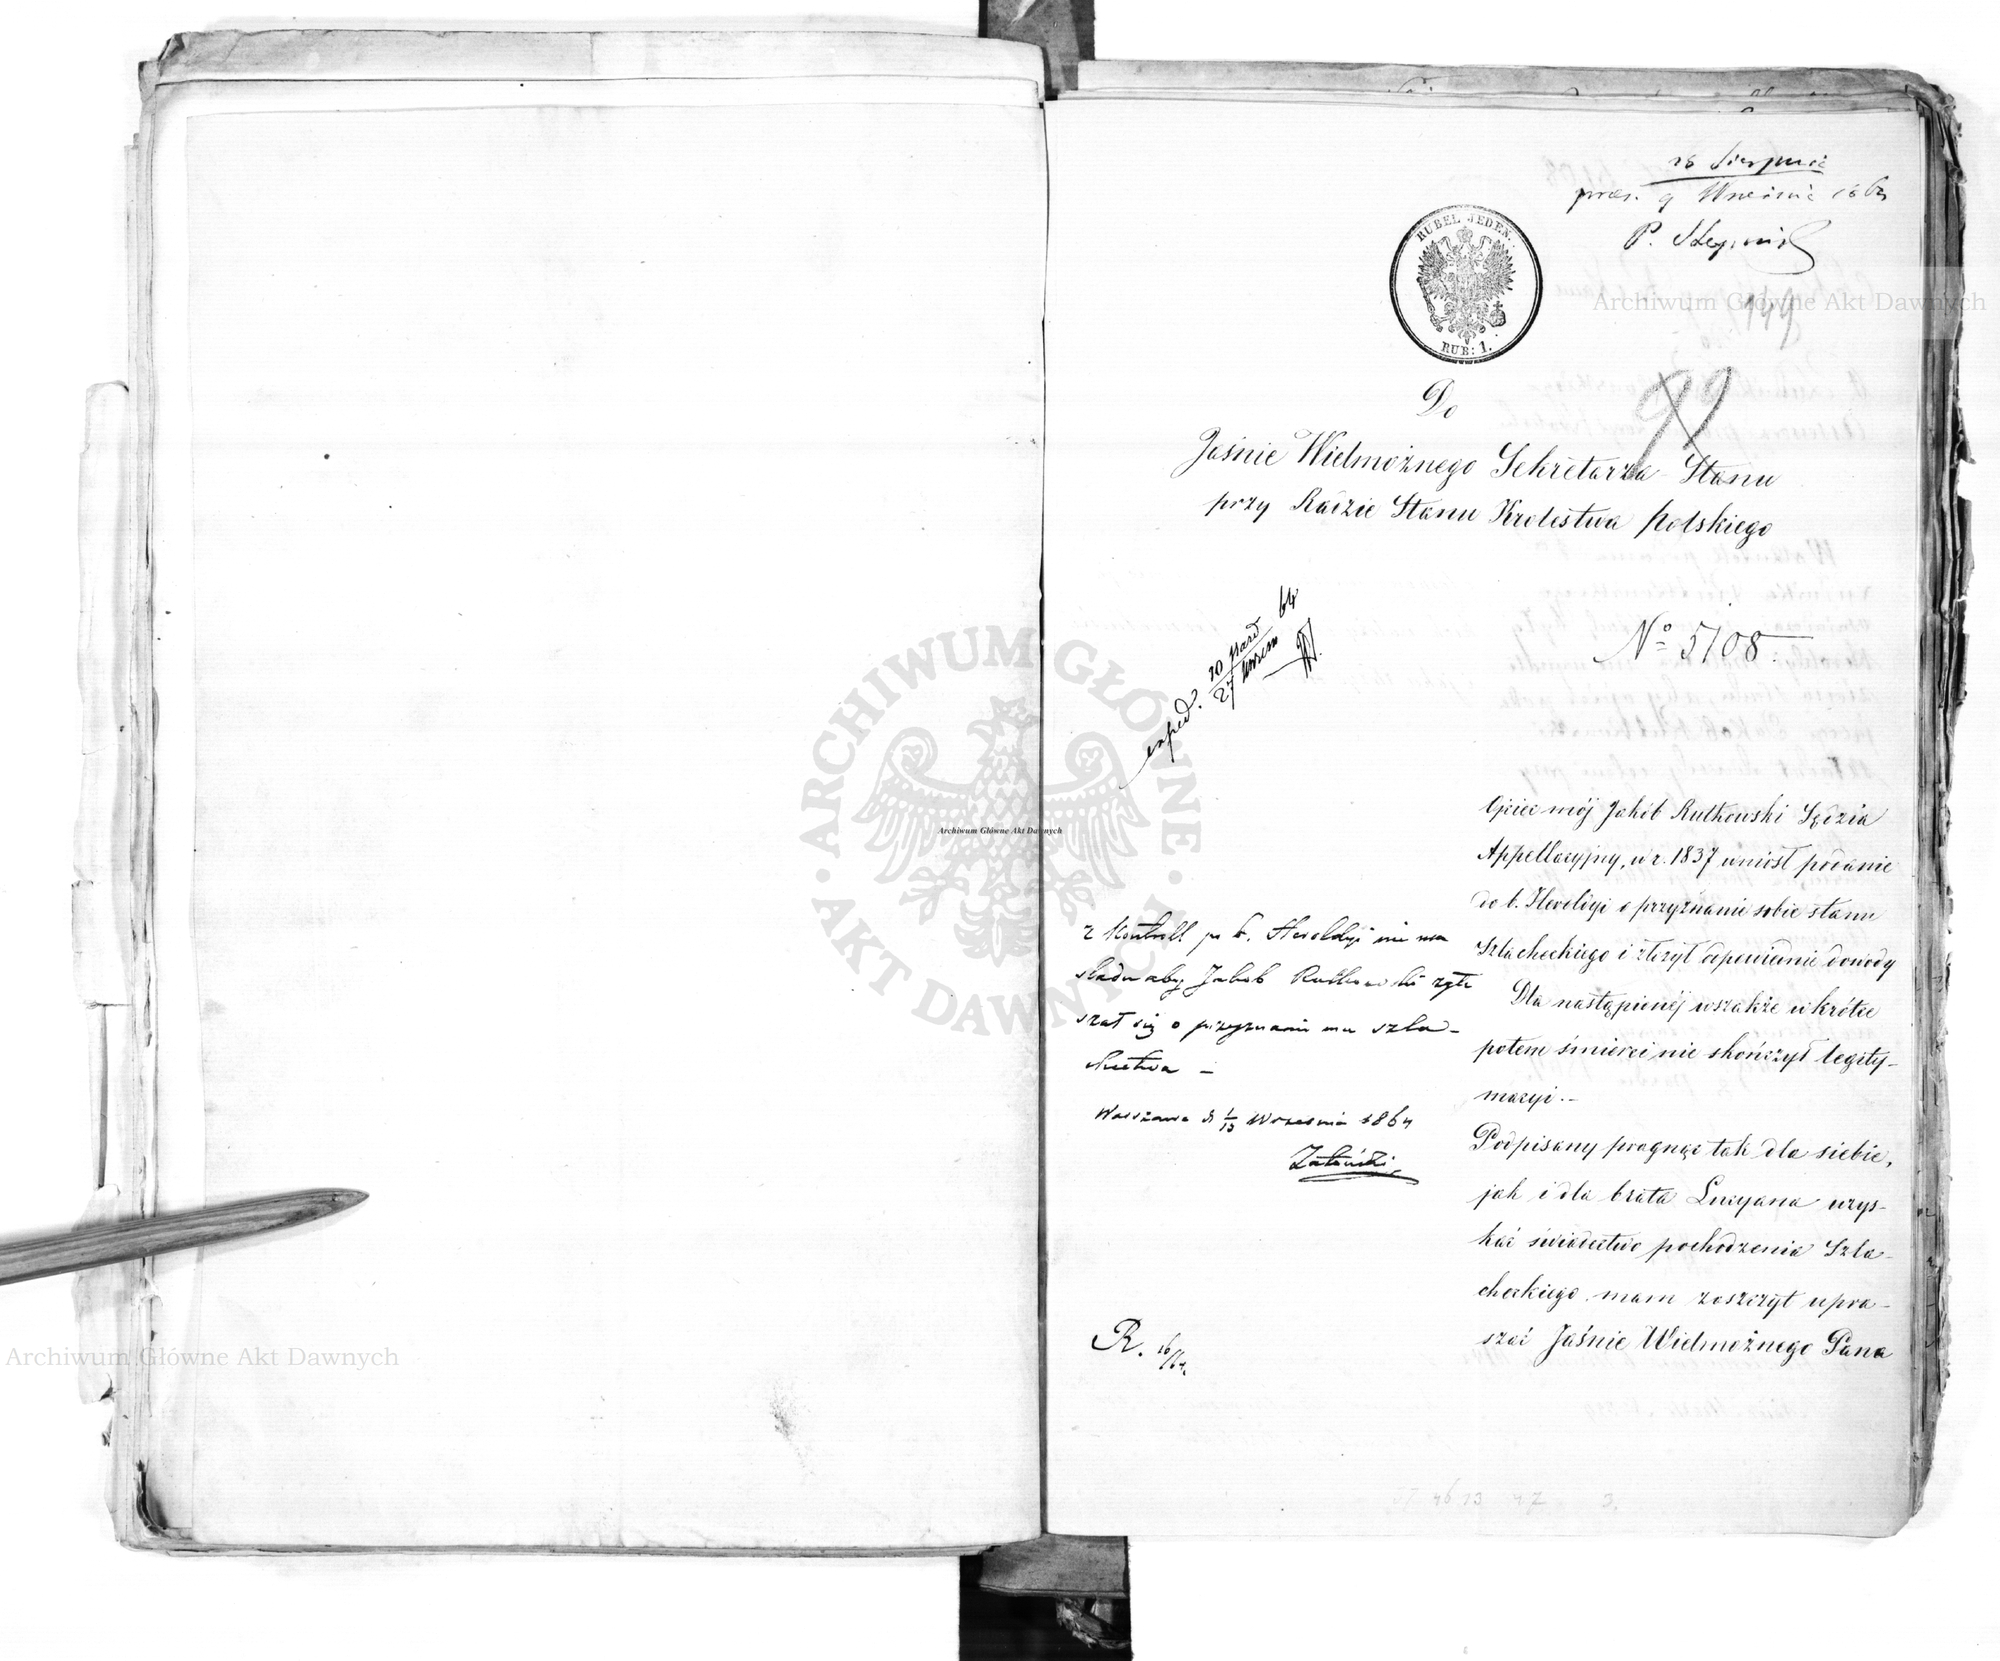 28 Sierpnia
prez. 9 Września 1864
P.
RUBEL JEDEN.
RUB: 1.
149
99
Do
Jaśnie Wielmożnego Sekretarza Stanu
przy Radzie Stanu Krolestwa Polskiego
No 5108.
exped. 64
27
Ojciec mój Jakób Rutkowski Sędzia
Appellacyjny, w r. 1837 wniosł podanie
do b. Heroldyi o przyznanie sobie stanu
Szlacheckiego i złożył odpowiednie dowody
Dla nastąpionéj wszakże wkrótce
potem śmierci nie skończył legity-
macyi.-
Podpisany pragnąc tak dla siebie,
jak i dla brata Lucyana uzys-
kać świadectwo pochodzenia Szla-
checkiego mam zaszczyt upra-
szać Jaśnie Wielmożnego Pana
z Kontroll po b. Heroldyi nie ma
śladu aby Jakob Rutkowski
szał się o przyznanie mu szla-
chectwa -
Warszawa d 1/13 Września 1864
R. 16/64.
ARCHIWUM GŁÓWNE
AKT DAWNYCH
Archiwum Główne Akt Dawnych
Archiwum Główne Akt Dawnych
Archiwum Główne Akt Dawnych